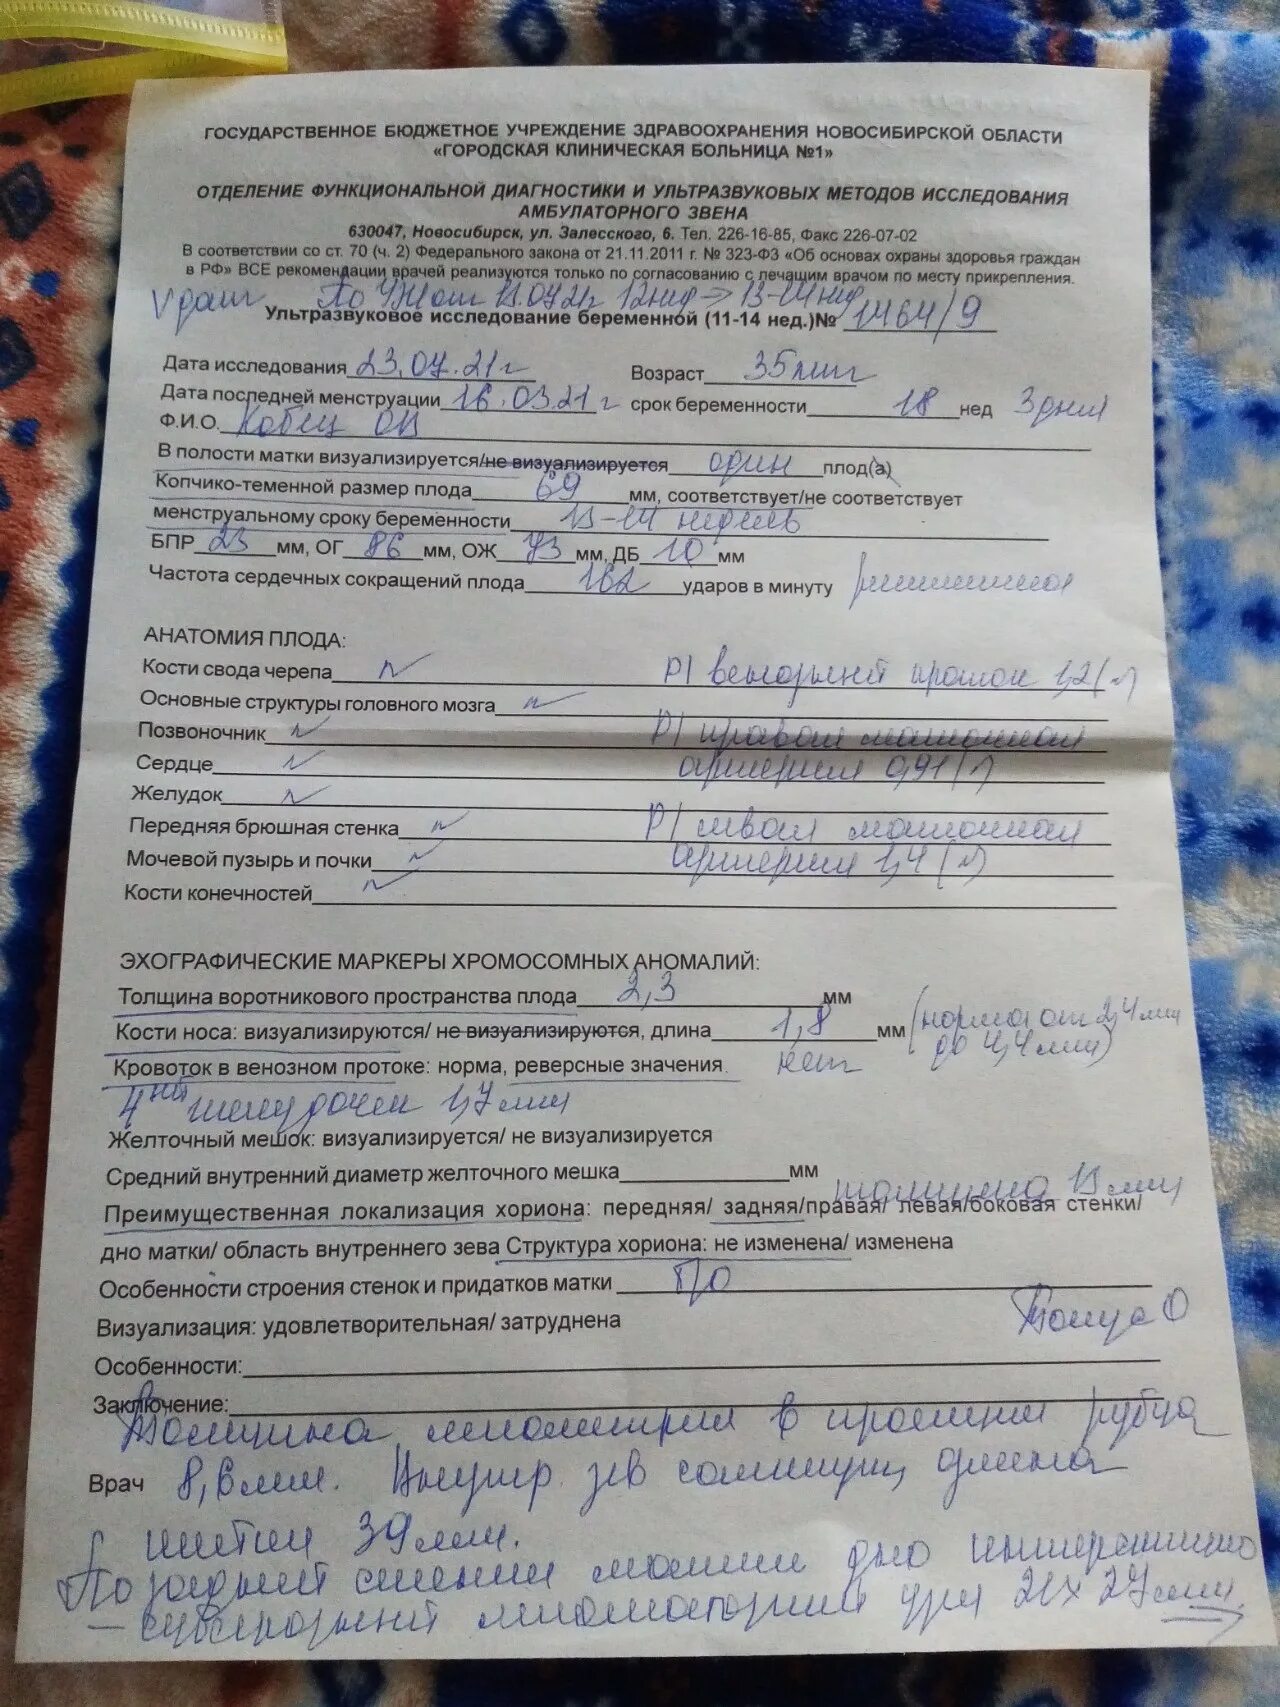 ГОСУДАРСТВЕННОЕ БЮДЖЕТНОЕ УЧРЕЖДЕНИЕ ЗДРАВООХРАНЕНИЯ НОВОСИБИРСКОЙ ОБЛАСТИ
«ГОРОДСКАЯ КЛИНИЧЕСКАЯ БОЛЬНИЦА №1»
ОТДЕЛЕНИЕ ФУНКЦИОНАЛЬНОЙ ДИАГНОСТИКИ И УЛЬТРАЗВУКОВЫХ МЕТОДОВ ИССЛЕДОВАНИЯ
АМБУЛАТОРНОГО ЗВЕНА
630047, Новосибирск, ул. Залесского, 6. Тел. 226-16-85, Факс 226-07-02
В соответствии со ст. 70 (ч. 2) Федерального закона от 21.11.2011 г. № 323-ФЗ «Об основах охраны здоровья граждан
в РФ» ВСЕ рекомендации врачей реализуются только по согласованию с лечащим врачом по месту прикрепления.
По УЗИ от 12 нед → 13-14 нед
Ультразвуковое исследование беременной (11-14 нед.)№ 1464/9
Дата исследования 23.07.21г Возраст 35 лет
Дата последней менструации 16.03.21г срок беременности 18 нед 3 дня
Ф.И.О. Кобец ОВ
В полости матки визуализируется/не визуализируется один плод(а)
Копчико-теменной размер плода 69 мм, соответствует/не соответствует
менструальному сроку беременности 13-14 недель
БПР 23 мм, ОГ 86 мм, ОЖ 73 мм, ДБ 10 мм
Частота сердечных сокращений плода 162 ударов в минуту ритмичное
АНАТОМИЯ ПЛОДА:
Кости свода черепа N PI венозный проток 1,2 (N)
Основные структуры головного мозга N
Позвоночник N PI правая маточная
Сердце N артерия 0,91 (N)
Желудок N
Передняя брюшная стенка N PI левая маточная
Мочевой пузырь и почки N артерия 1,4 (N)
Кости конечностей N
ЭХОГРАФИЧЕСКИЕ МАРКЕРЫ ХРОМОСОМНЫХ АНОМАЛИЙ:
Толщина воротникового пространства плода 2,3 мм
Кости носа: визуализируются/ не визуализируются, длина 1,8 мм (норма от 2,4мм
до 4,4мм)
Кровоток в венозном протоке: норма, реверсные значения. нет
4ный желудочек 1,7мм
Желточный мешок: визуализируется/ не визуализируется
Средний внутренний диаметр желточного мешка мм
толщина 13 мм
Преимущественная локализация хориона: передняя/ задняя/правая/ левая/боковая стенки/
дно матки/ область внутреннего зева Структура хориона: не изменена/ изменена
Особенности строения стенок и придатков матки п/о
Визуализация: удовлетворительная/ затруднена
Тонус О
Особенности:
Заключение:
Толщина миометрия в проекции рубца
Врач 8,6мм. Внутр. зев сомкнут, длина
шейки 39мм.
По задней стенке матки дно интерстицио
-субсерозный миоматозный узел 21х27мм.